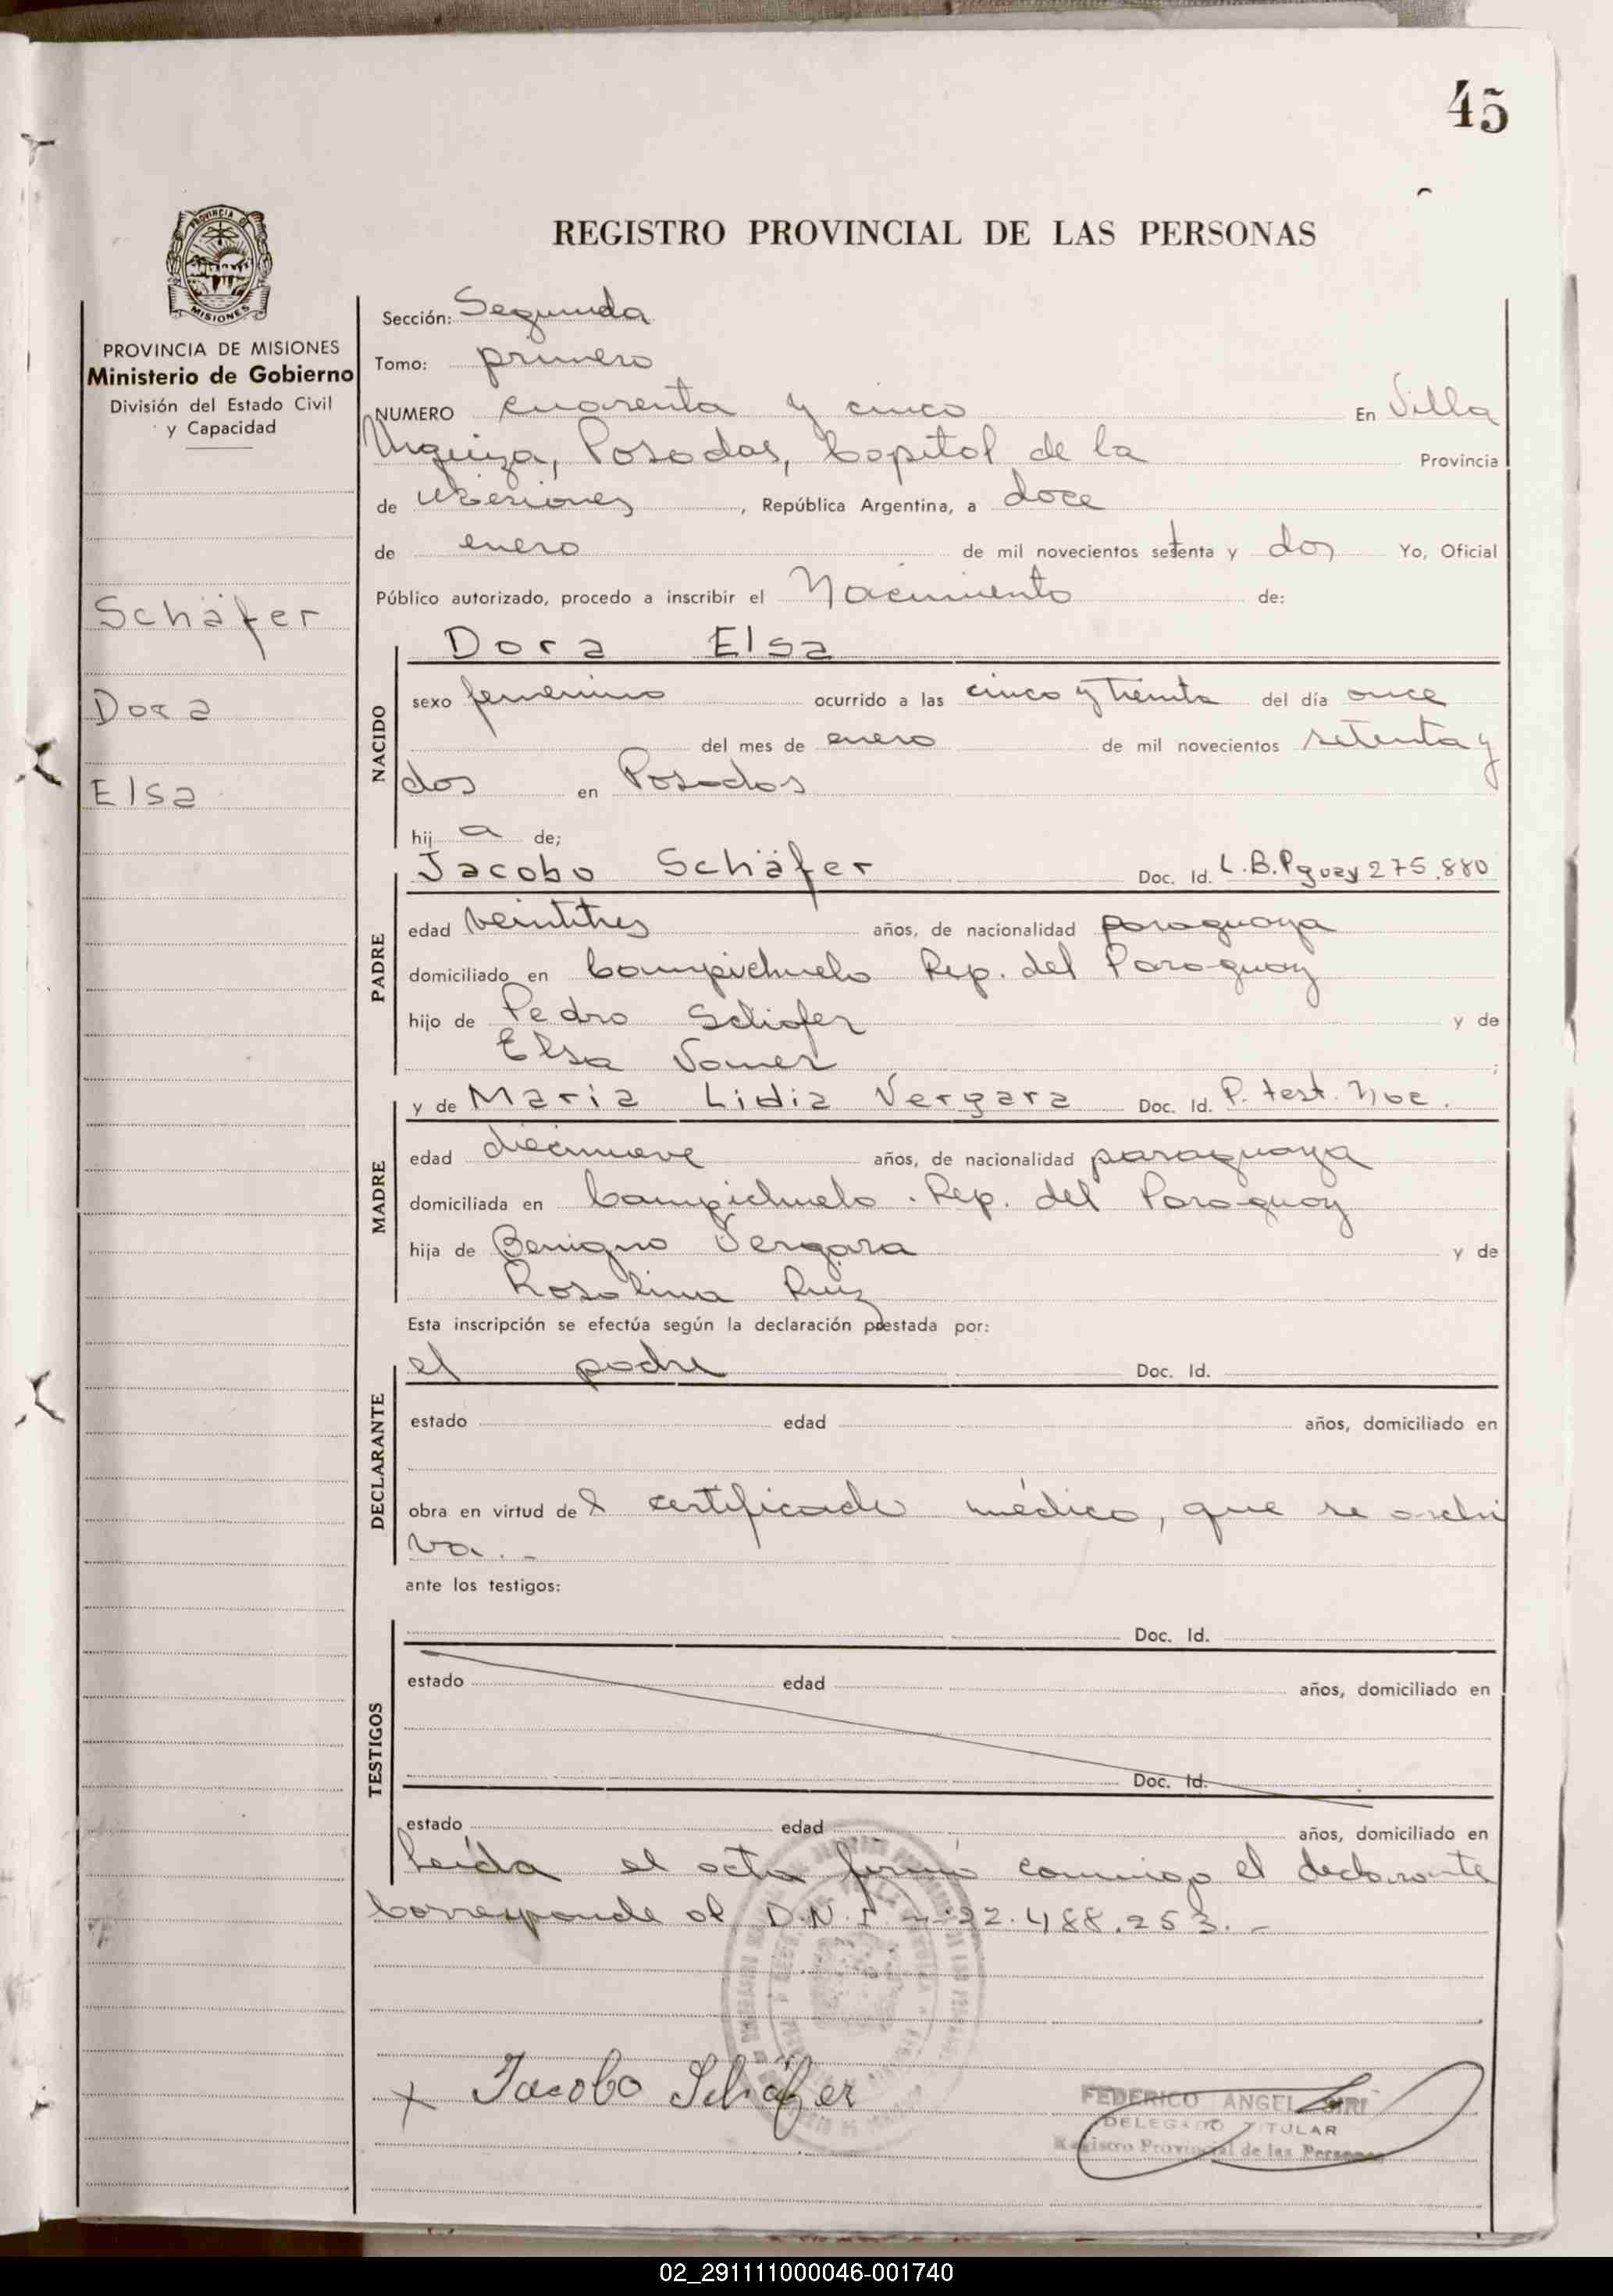 45
REGISTRO PROVINCIAL DE LAS PERSONAS
PROVINCIA DE MISIONES
PROVINCIA DE MISIONES
Ministerio de Gobierno
División del Estado Civil
y Capacidad
Schäfer
Dora
Elsa
Sección: Segunda
Tomo: primero
NUMERO cuarenta y cinco En Villa
Urquiza, Posadas, Capital de la Provincia
de Misiones, República Argentina, a doce
de enero de mil novecientos setenta y dos Yo, Oficial
Público autorizado, procedo a inscribir el Nacimiento de:
NACIDO
Dora Elsa
sexo femenino ocurrido a las cinco y treinta del día once
del mes de enero de mil novecientos setenta y
dos en Posadas
hij a de;
PADRE
Jacobo Schäfer Doc. Id. L.B.Pguay 275.880
edad veintitres años, de nacionalidad paraguaya
domiciliado en Campichuelo Rep. del Paraguay
hijo de Pedro Schäfer y de
Elsa ;
MADRE
y de Maria Lidia Vergara Doc. Id. P. test. Nac.
edad diecinueve años, de nacionalidad paraguaya
domiciliada en Campichuelo. Rep. del Paraguay
hija de Benigno Vergara y de
Rosalina Ruiz
Esta inscripción se efectúa según la declaración prestada por:
DECLARANTE
el padre Doc. Id.
estado edad años, domiciliado en
obra en virtud del certificado médico, que se archi
va.-
ante los testigos:
TESTIGOS
Doc. Id.
estado edad años, domiciliado en
Doc. Id.
estado edad años, domiciliado en
Leída el acta firmó conmigo el declarante
Corresponde al D.N.I. 22.488.253.-
x Jacobo Schäfer
FEDERICO ANGEL SIRI
DELEGADO TITULAR
Registro Provincial de las Personas
02_291111000046-001740